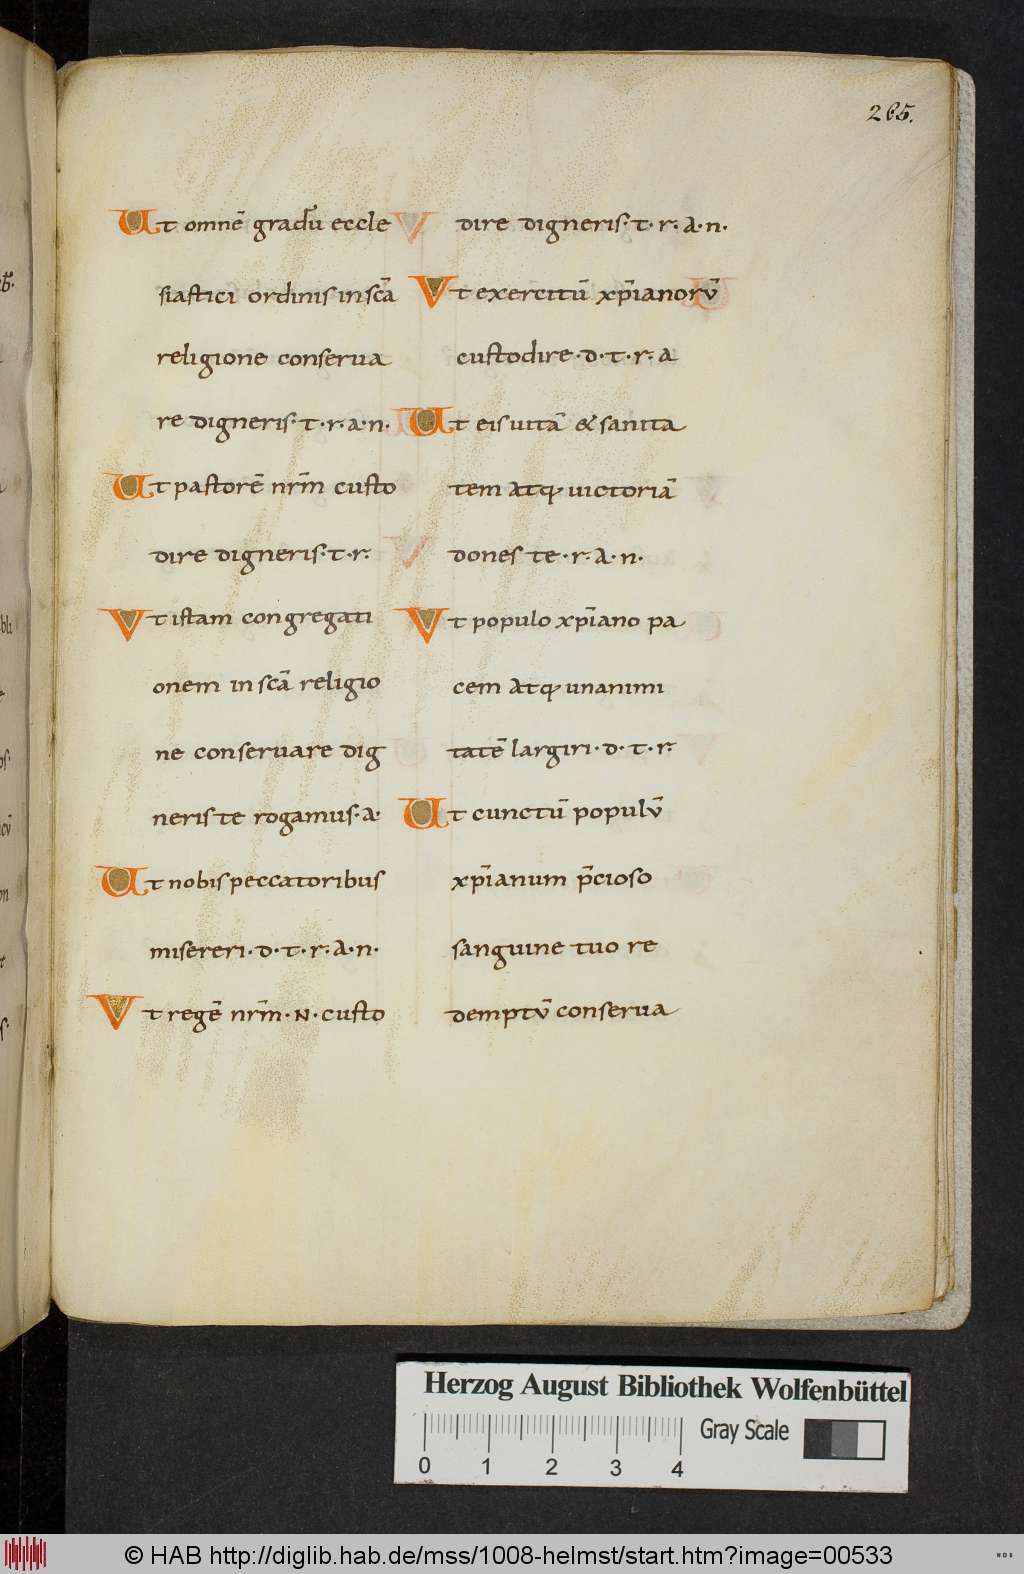 265.
Ut omnē gradū eccle
siastici ordinis in scā
religione conserua
re digneris· t· r· a· n·
Ut pastorē nrm̄ custo
dire digneris· t· r·
Vt istam congregati
onem in scā religio
ne conseruare dig
neris te rogamus· a·
Ut nobis peccatoribus
misereri· d· t· r· a· n·
Vt regē nrm̄· N· custo
dire digneris· t· r· a· n·
Vt exercitū xp̄ianorū
custodire· d· t· r· a
Ut eis uitā & sanita
tem atq; uictoriā
dones te· r· a· n·
Vt populo xp̄iano pa
cem atq; unanimi
tatē largiri· d· t· r·
Ut cunctū populū
xp̄ianum p̄cioso
sanguine tuo re
demptū conserua
Herzog August Bibliothek Wolfenbüttel
Gray Scale
0 1 2 3 4
© HAB http://diglib.hab.de/mss/1008-helmst/start.htm?image=00533